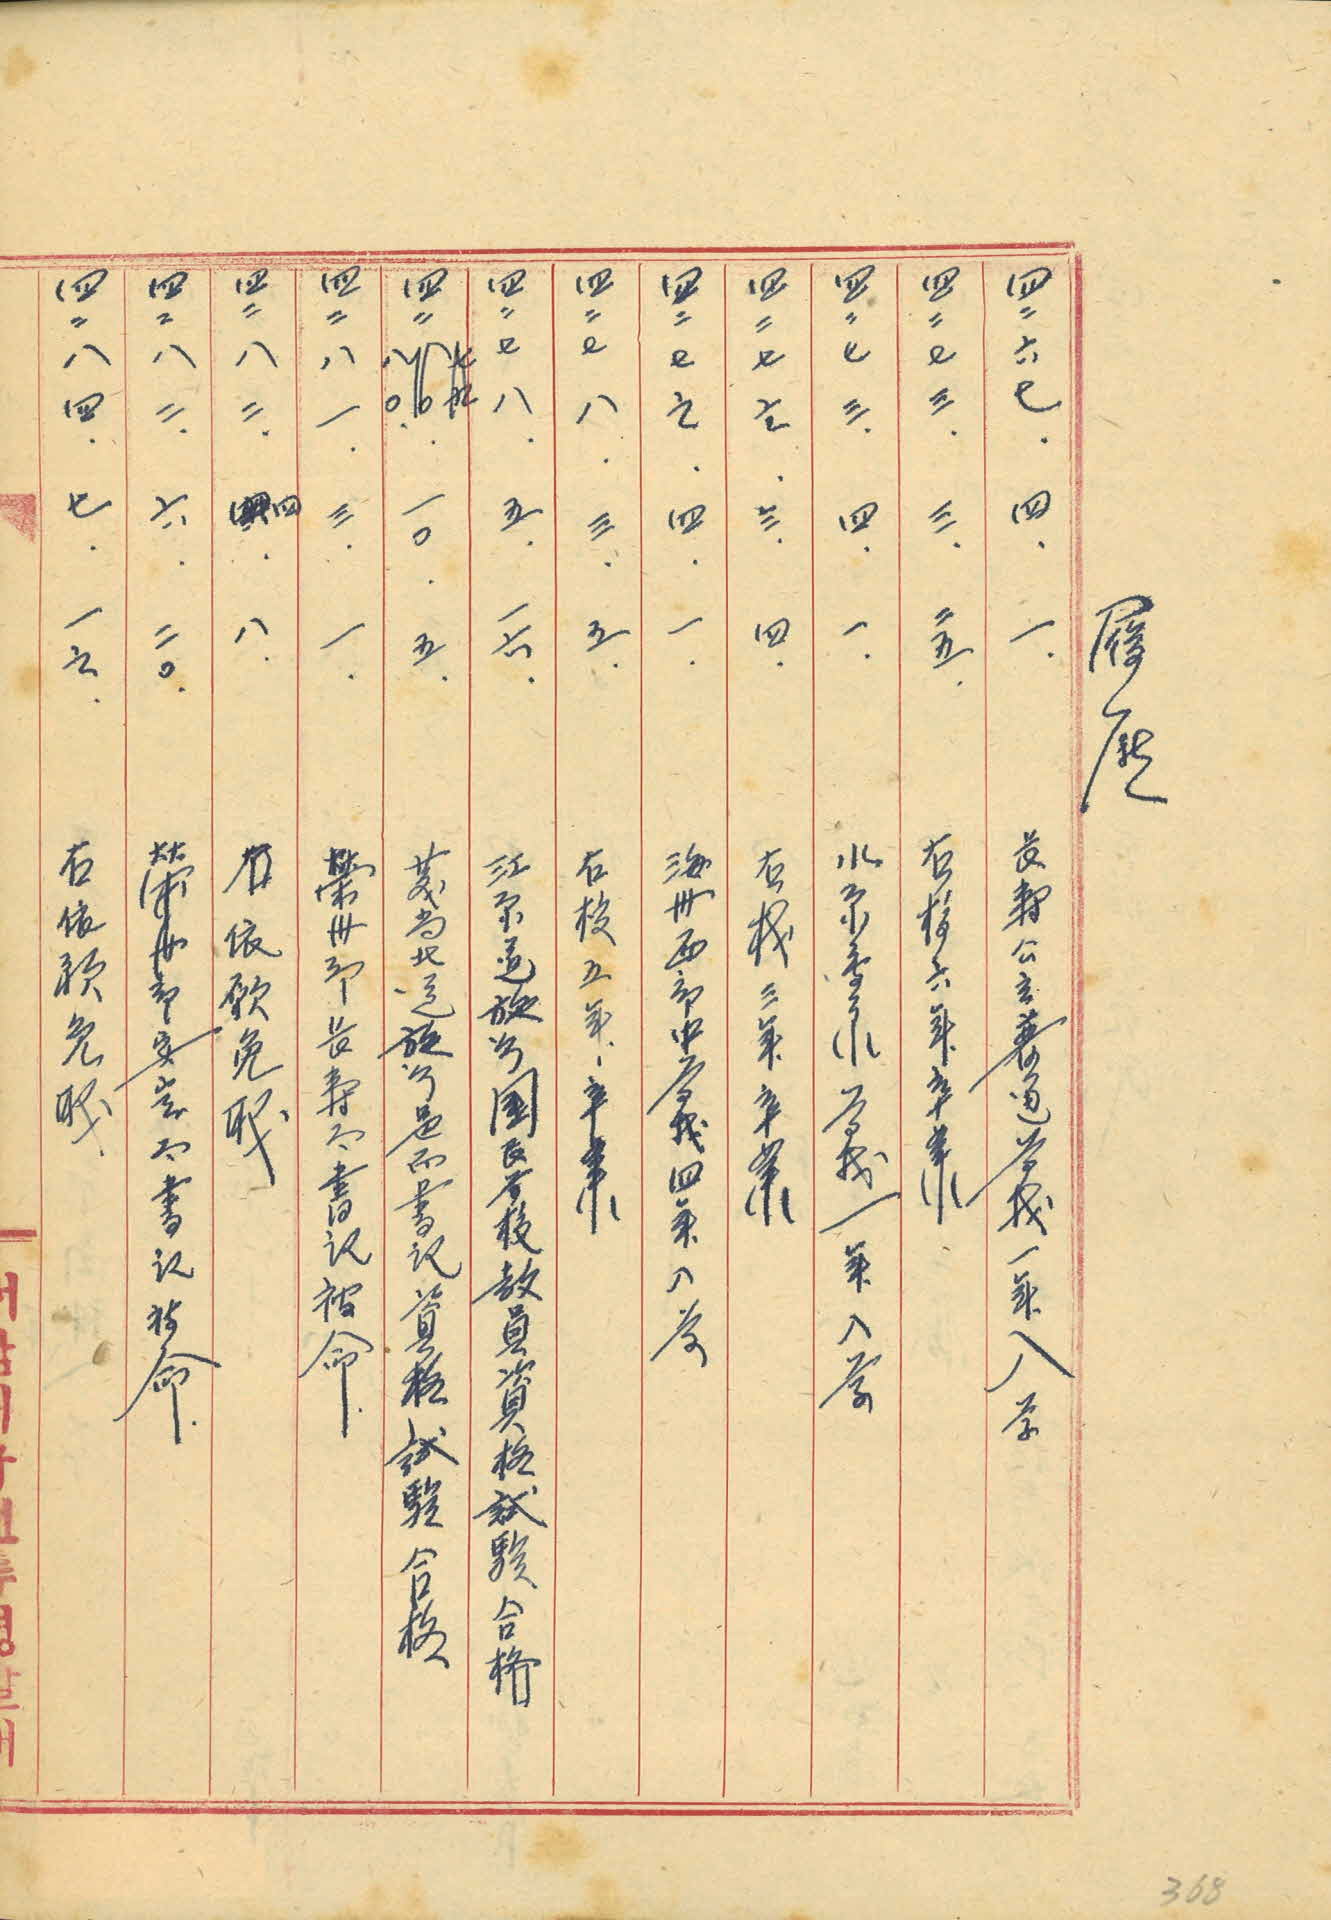 履歷
四二六七.四.一. 長壽公立普通学校一年入学
四二七三.三.二五. 右校六年卒業
四二七三.四.一. 小泉農業学校一年入学
四二七六.三.四. 右校三年卒業
四二七六.四.一. 海州西部中学校四年入学
四二七八.三.五. 右校五年卒業
四二七八.五.一六. 江原道施行國民学校教員資格試験合格
四二八〇.一〇.五. 慶尚北道施行邑面書記資格試験合格
四二八一.三.一. 榮州郡長壽面書記被命
四二八二.四.八. 右依願免職
四二八二.六.二〇. 榮州郡安定面書記被命.
四二八四.七.一六. 右依願免職.
368